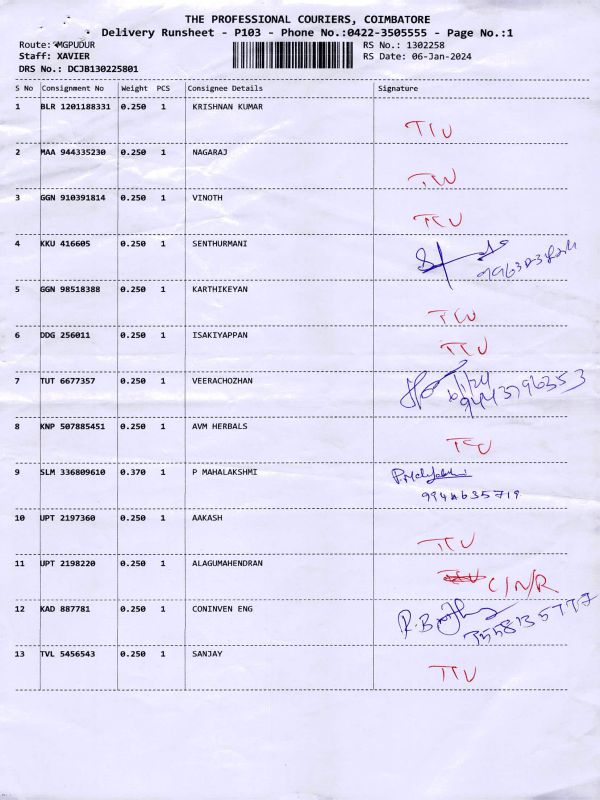 THE PROFESSIONAL COURIERS, COIMBATORE
Delivery Runsheet - P103 - Phone No.:0422-3505555 - Page No.:1
Route: MGPUDUR RS No.: 1302258
Staff: XAVIER RS Date: 06-Jan-2024
DRS No.: DCJB130225801
S No Consignment No Weight PCS Consignee Details Signature
1 BLR 1201188331 0.250 1 KRISHNAN KUMAR
2 MAA 944335230 0.250 1 NAGARAJ
3 GGN 910391814 0.250 1 VINOTH
4 KKU 416605 0.250 1 SENTHURMANI
5 GGN 98518388 0.250 1 KARTHIKEYAN
6 DDG 256011 0.250 1 ISAKIYAPPAN
7 TUT 6677357 0.250 1 VEERACHOZHAN
9443796353
8 KNP 507885451 0.250 1 AVM HERBALS
9 SLM 336809610 0.370 1 P MAHALAKSHMI
10 UPT 2197360 0.250 1 AAKASH
11 UPT 2198220 0.250 1 ALAGUMAHENDRAN
C/N/R
12 KAD 887781 0.250 1 CONINVEN ENG
13 TVL 5456543 0.250 1 SANJAY